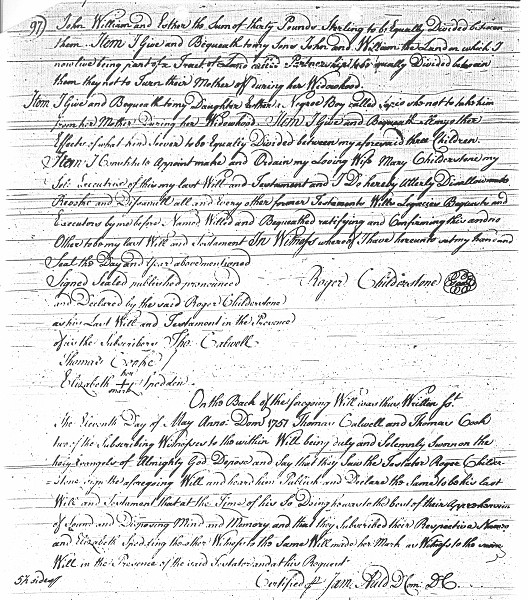 97) John William and Esther the Sum of thirty Pounds Sterling to be Equally Divided between
them. Item I Give and Bequeath to my Sons John and William the Land on which I
now live being part of a Tract of Land called Partnership to be equally Divided between
them they not to Turn their Mother off during her Widowhood.
Item I Give and Bequeath to my Daughter Esther a Negroe Boy called who not to take him
from her Mother During her Widowhood. Item I Give and Bequeath all my other
Effects of what kind soever to be Equally Divided between my aforesaid three Children.
Item I Constitute Appoint make and Ordain my Loving Wife Mary Childerstone my
Sole Executrix of this my last Will and Testament and I Do hereby utterly Disallow
Revoke and Disannull all and Every other former Testaments Wills Legacies Bequests and
Executors by me before Named Willed and Bequeathed ratifying and Confirming this and no
Other to be my last Will and Testament In Witness whereof I have hereunto set my hand and
Seal the Day and Year abovementioned
Signed Sealed published pronounced
Roger Childerstone Seal
and Declared by the said Roger Childerstone
as his Last Will and Testament in the Presence
of us the Subscribers Tho. Calwell
Thomas Cooke
Elizabeth her + mark Spedden
On the Back of the foregoing Will was thus Written
The Eleventh Day of May Anno Dom 1751 Thomas Calwell and Thomas Cook
two of the Subscribing Witnesses to the within Will being duly and Solemnly Sworn on the
holy Evangels of Almighty God Depose and Say that they Saw the Testator Roger Childer-
-stone Sign the aforegoing Will and heard him Publish and Declare the Same to be his last
Will and Testament that at the Time of his So Doing he was to the best of their Apprehension
of Sound and Disposing Mind and Memory and that they Subscribed their Respective Names
and Elizabeth Spedding the other Witness to the Same Will made her Mark as Witness to the same
Will in the Presence of the said Testator and at his Request
Certified Jam. Auld D Com.